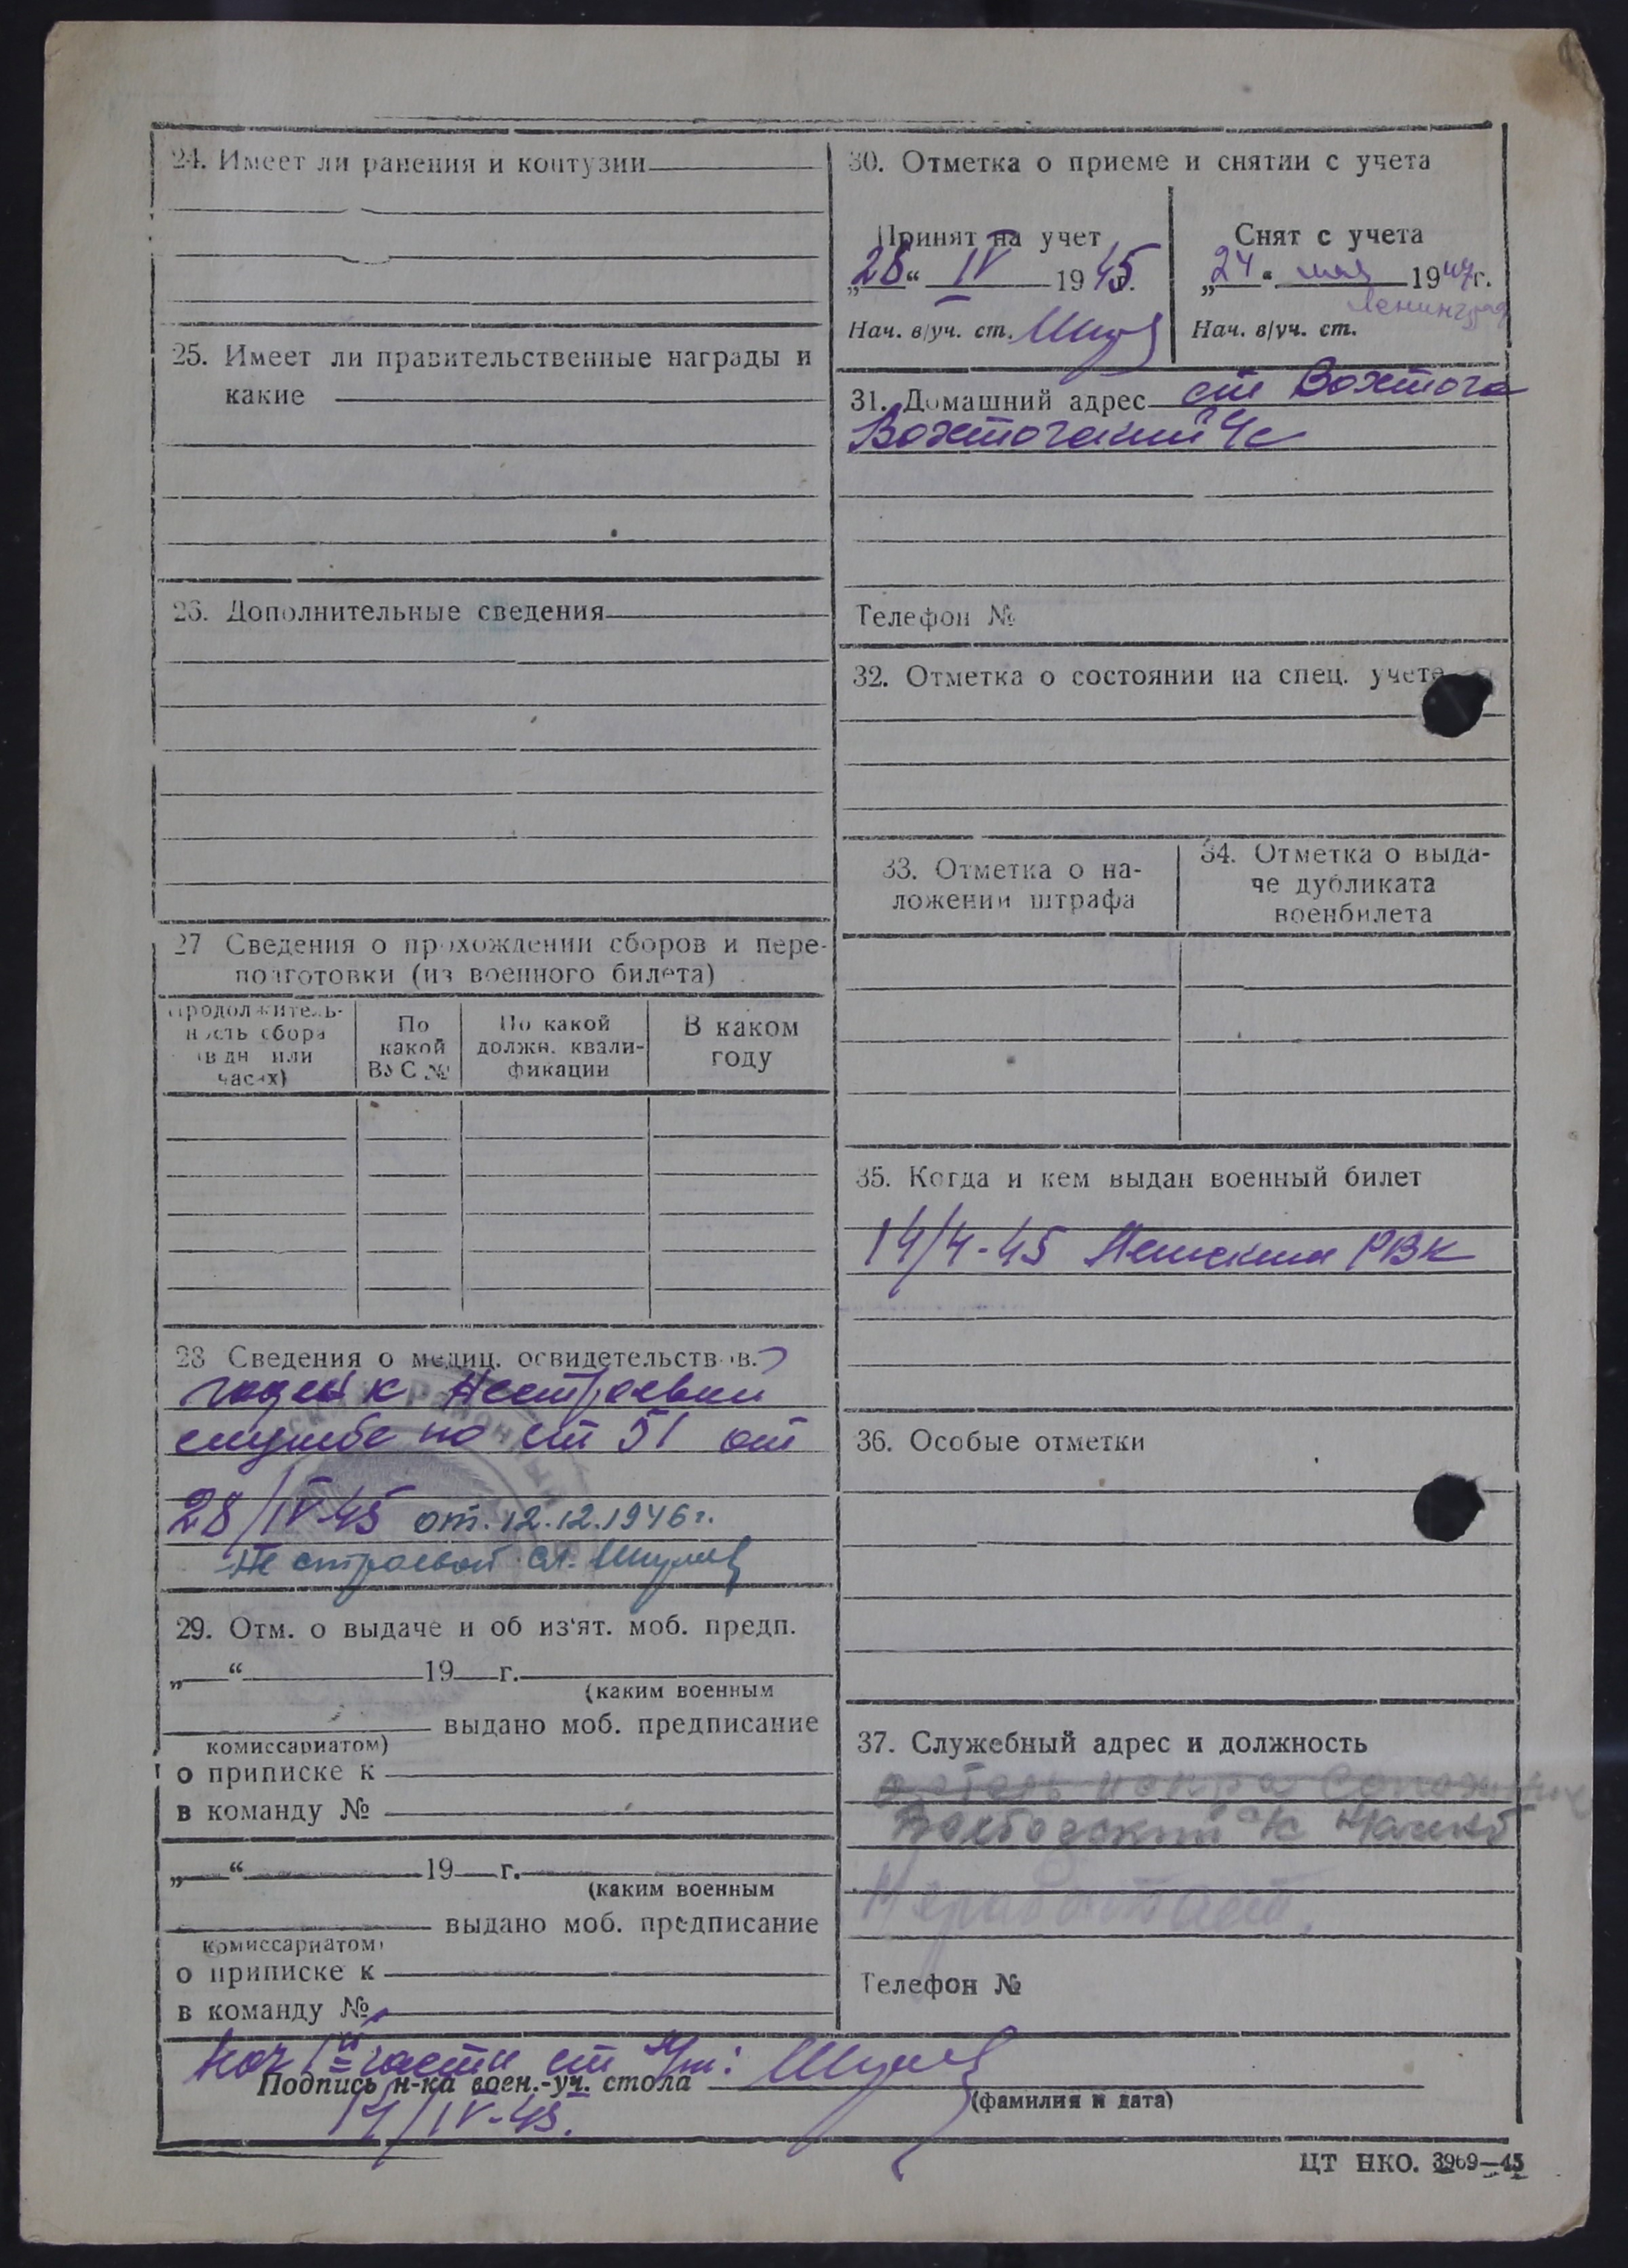 24. Имеет ли ранения и контузии
25. Имеет ли правительственные награды и
какие
26. Дополнительные сведения
27 Сведения о прохождении сборов и пере-
подготовки (из военного билета)
Продолжитель-
ность сбора
(в дн или
часах)
По
какой
ВУС №
По какой
должн. квали-
фикации
В каком
году
28 Сведения о медиц. освидетельствов.
годен к нестроевой
службе по ст 51 от
28/IV-45 от. 12.12.1946 г.
Не строевой сл. Шулев
29. Отм. о выдаче и об из‘ят. моб. предп.
„ “ 19 г.
(каким военным
выдано моб. предписание
комиссариатом)
о приписке к
в команду №
„ “ 19 г.
(каким военным
выдано моб. предписание
комиссариатом)
о приписке к
в команду №
30. Отметка о приеме и снятии с учета
Принят на учет
„28“ IV 1945.
Нач. в/уч. ст.
Снят с учета
„24“ мая 1947г.
Ленинград
Нач. в/уч. ст.
31. Домашний адрес ст Вохтога
Вохтогский с/с
Телефон №
32. Отметка о состоянии на спец. учете
33. Отметка о на-
ложении штрафа
34. Отметка о выда-
че дубликата
военбилета
35. Когда и кем выдан военный билет
14/4-45 РВК
36. Особые отметки
37. Служебный адрес и должность
Не работает.
Телефон №
Нач части ст л-т: Шулев
Подпись н-ка воен.-уч. стола
(фамилия и дата)
/IV-45.
ЦТ НКО. 3969—45